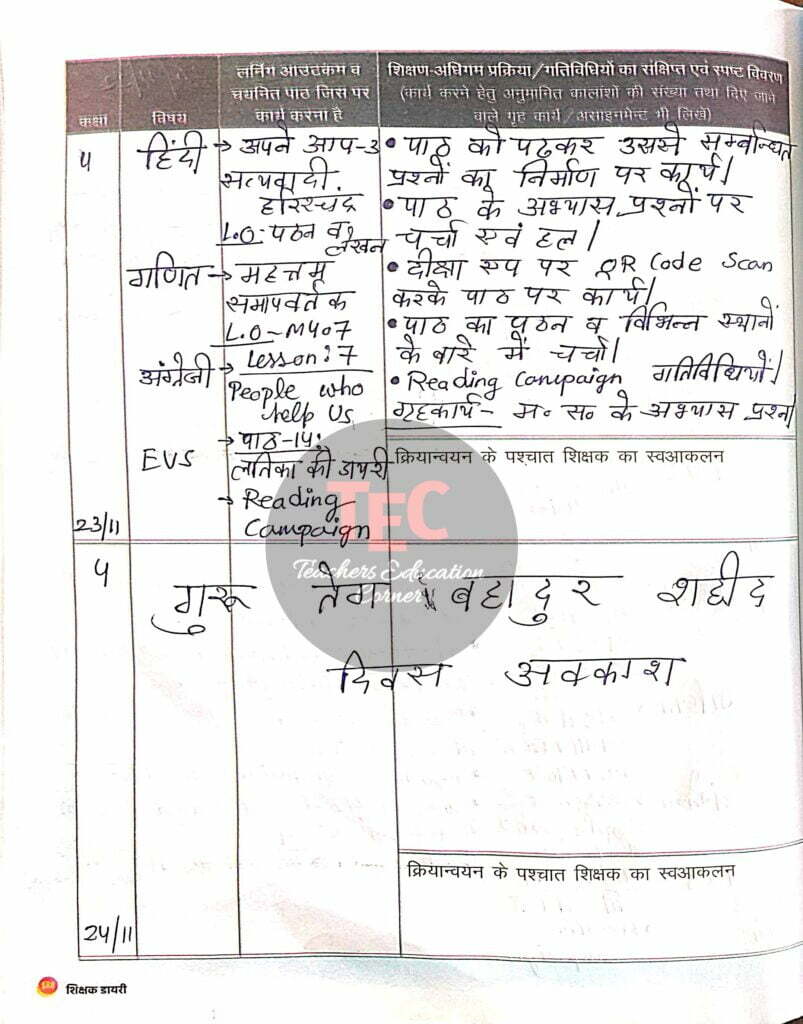 कक्षा
विषय
लर्निंग आउटकम व
चयनित पाठ जिस पर
कार्य करना है
शिक्षण-अधिगम प्रक्रिया/गतिविधियों का संक्षिप्त एवं स्पष्ट विवरण
(कार्य करने हेतु अनुमानित कालांशो की संख्या तथा दिए जाने
वाले गृह कार्य/असाइनमेन्ट भी लिखें)
५
हिंदी
→ अपने आप-3
सत्यवादी
हरिश्चंद्र
L.O- पठन व लेखन
गणित
→ महत्तम
समापवर्तक
L.O-M407
अंग्रेजी
→ Lesson:7
People who
help Us
EVS
→ पाठ-14:
लतिका की डायरी
→ Reading
Campaign
23/11
• पाठ को पढ़कर उससे सम्बन्धित
प्रश्नों का निर्माण पर कार्य।
• पाठ के अभ्यास प्रश्नों पर
चर्चा एवं हल।
• दीक्षा एप पर QR Code Scan
करके पाठ पर कार्य।
• पाठ का पठन व विभिन्न स्थानों
के बारे में चर्चा।
• Reading Campaign गतिविधियाँ।
गृहकार्य- म॰ स॰ के अभ्यास प्रश्न।
क्रियान्वयन के पश्चात शिक्षक का स्वआकलन
TEC
Teachers Education
Corner
५
गुरू तेग बहादुर शहीद
दिवस अवकाश
24/11
क्रियान्वयन के पश्चात शिक्षक का स्वआकलन
शिक्षक डायरी